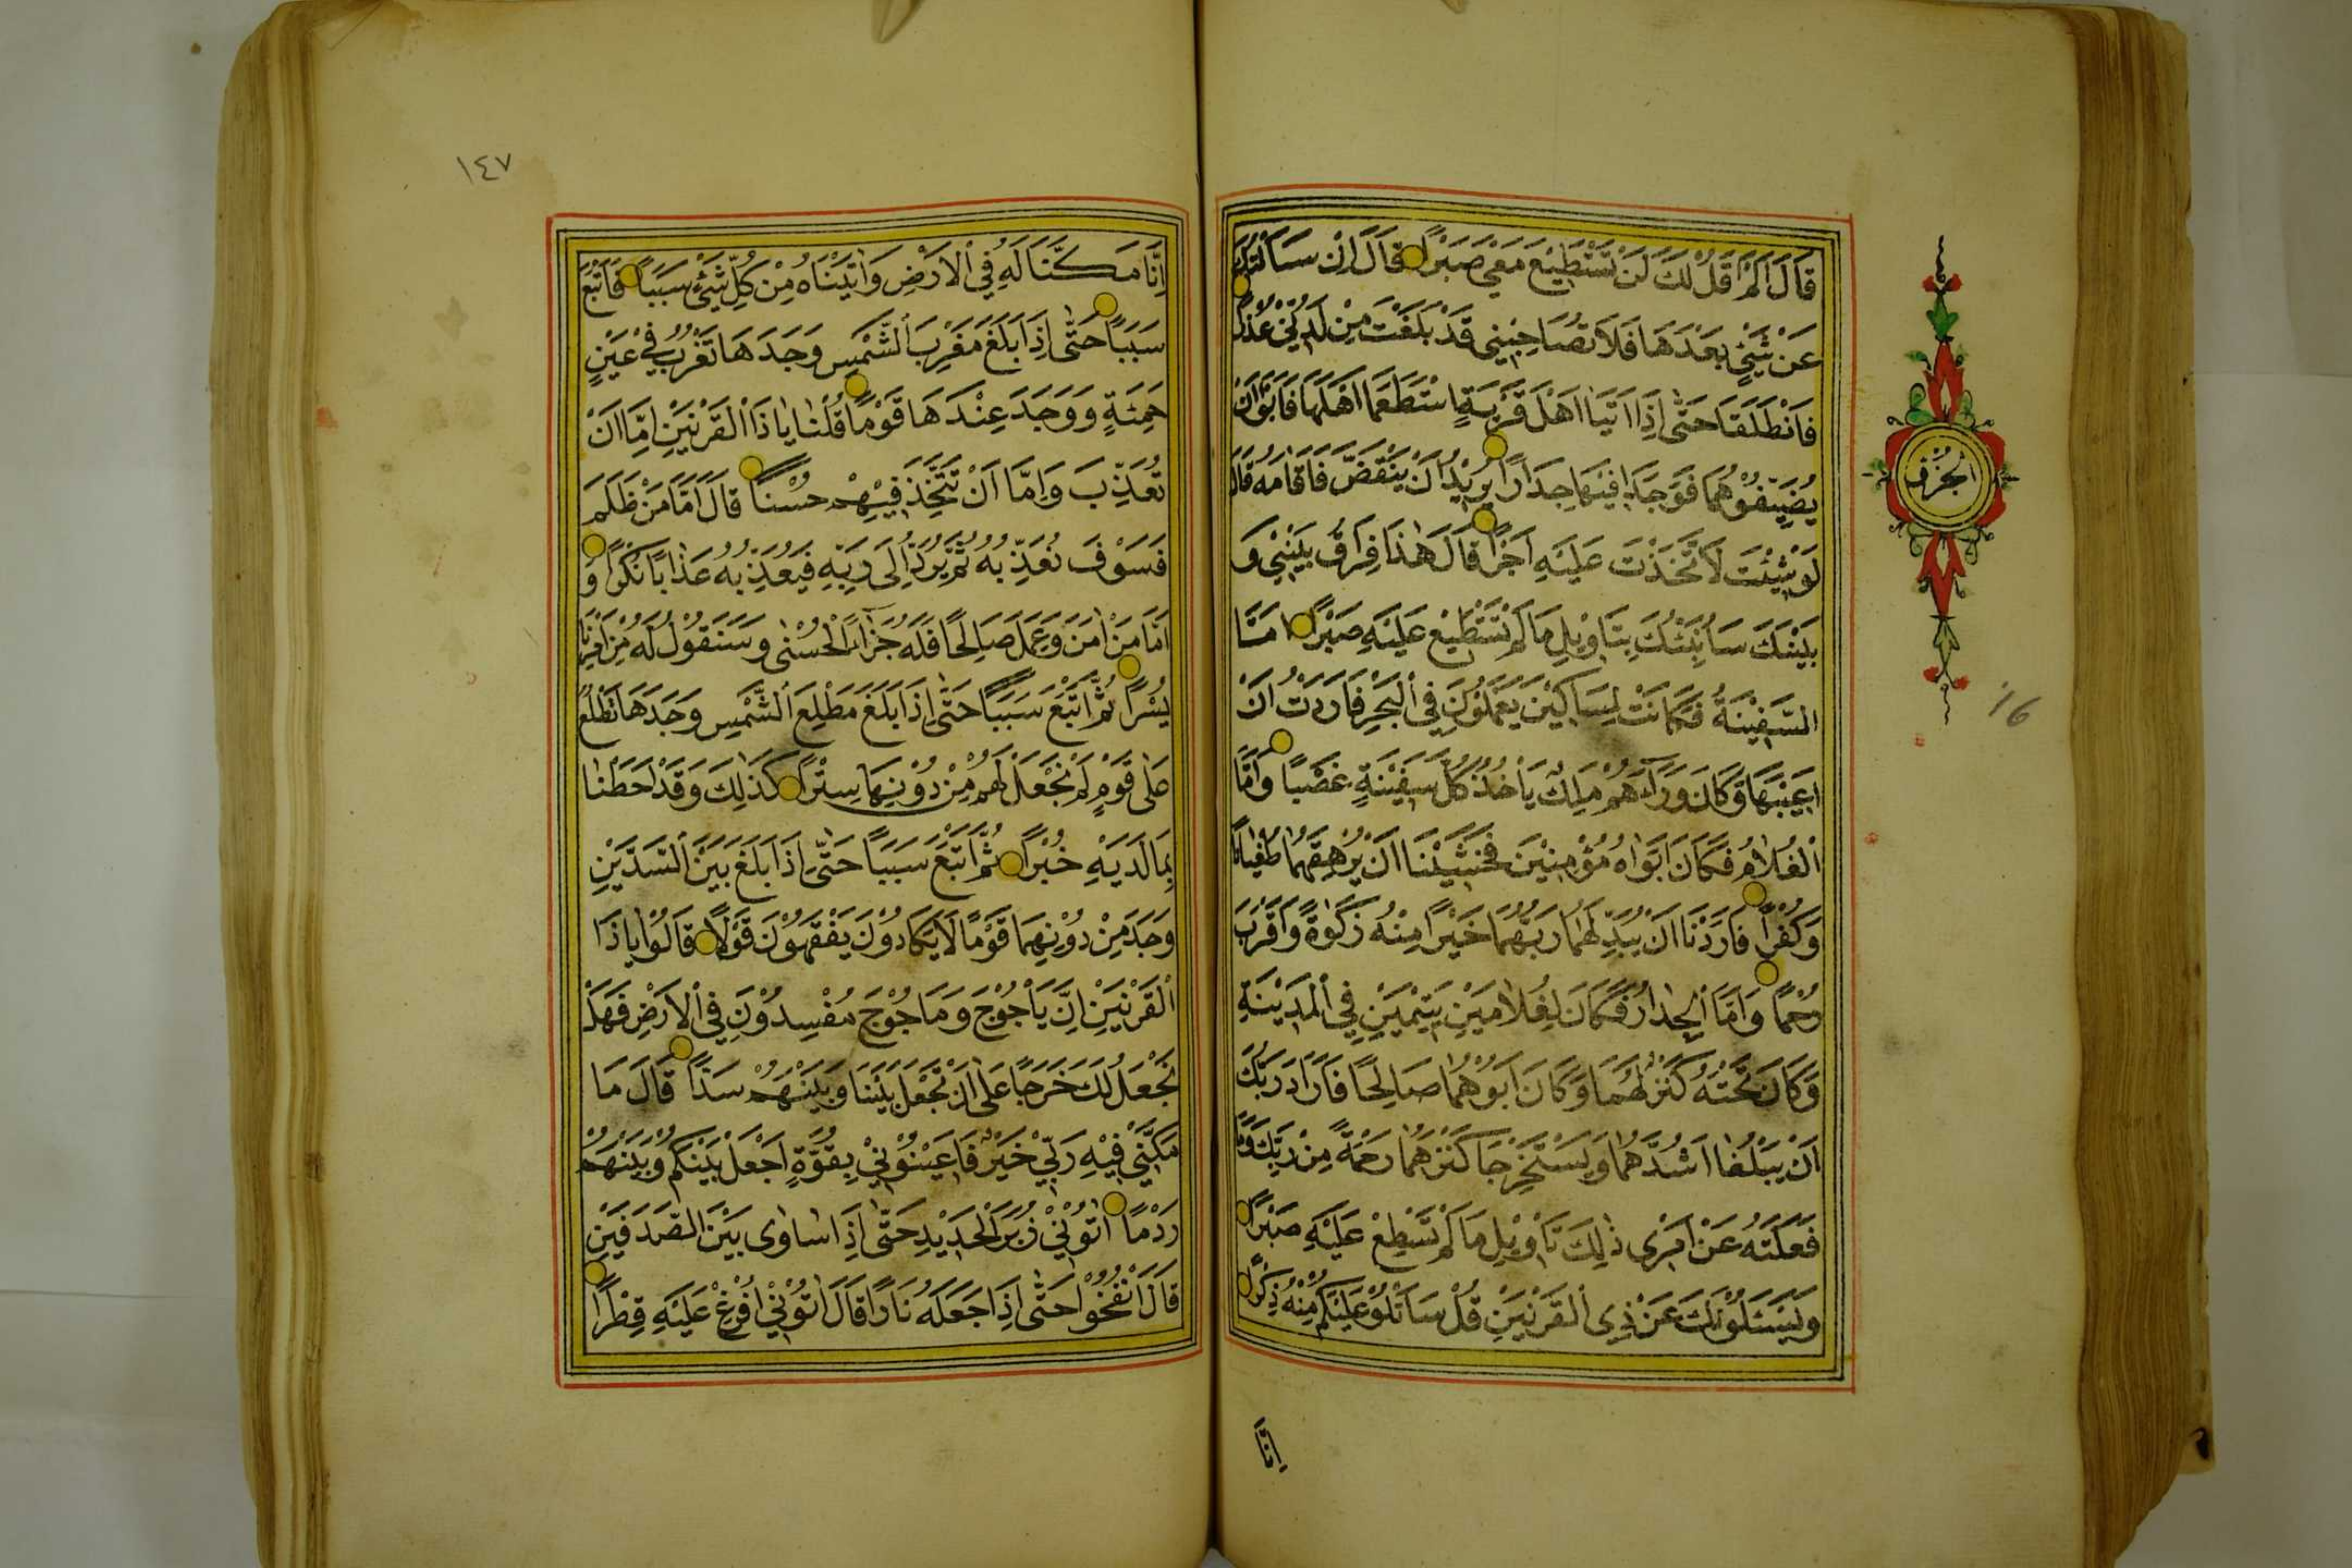 قَالَ اَلَمْ اَقُلْ لَكَ لَنْ تَسْتَطِيْعَ مَعِيَ صَبْرًا قَالَ اِنْ سَاَلْتُكَ
عَنْ شَيْئٍ بَعْدَهَا فَلَا تُصَاحِبْنِي قَدْ بَلَغْتَ مِنْ لَدُنِّي عُذْرًا
فَانْطَلَقَا حَتّٰى اِذَا اَتَيَا اَهْلَ قَرْيَةٍ اسْتَطْعَمَا اَهْلَهَا فَاَبَوْا اَنْ
يُضَيِّفُوْهُمَا فَوَجَدَا فِيْهَا جِدَارًا يُرِيْدُ اَنْ يَنْقَضَّ فَاَقَامَهُ قَالَ
لَوْ شِئْتَ لَاتَّخَذْتَ عَلَيْهِ اَجْرًا قَالَ هٰذَا فِرَاقُ بَيْنِي وَ
بَيْنِكَ سَاُنَبِّئُكَ بِتَاْوِيْلِ مَا لَمْ تَسْتَطِيْعْ عَلَيْهِ صَبْرًا اَمَّا
السَّفِيْنَةُ فَكَانَتْ لِمَسَاكِيْنَ يَعْمَلُوْنَ فِي الْبَحْرِ فَاَرَدْتُ اَنْ
اَعِيْبَهَا وَكَانَ وَرَآءَهُمْ مَلِكٌ يَاْخُذُ كُلَّ سَفِيْنَةٍ غَصْبًا وَاَمَّا
الْغُلَامُ فَكَانَ اَبَوَاهُ مُؤْمِنِيْنَ فَخَشِيْنَا اَنْ يُرْهِقَهُمَا طُغْيَانًا
وَكُفْرًا فَاَرَدْنَا اَنْ يُبَدِّلَهُمَا رَبُّهُمَا خَيْرًا مِنْهُ زَكٰوةً وَاَقْرَبَ
رُحْمًا وَاَمَّا الْجِدَارُ فَكَانَ لِغُلَامَيْنِ يَتِيْمَيْنِ فِي الْمَدِيْنَةِ
وَكَانَ تَحْتَهُ كَنْزٌ لَهُمَا وَكَانَ اَبُوْهُمَا صَالِحًا فَاَرَادَ رَبُّكَ
اَنْ يَبْلُغَا اَشُدَّهُمَا وَيَسْتَخْرِجَا كَنْزَهُمَا رَحْمَةً مِنْ رَبِّكَ وَمَا
فَعَلْتُهُ عَنْ اَمْرِي ذٰلِكَ تَاْوِيْلُ مَا لَمْ تَسْطِعْ عَلَيْهِ صَبْرًا
وَيَسْئَلُوْنَكَ عَنْ ذِي الْقَرْنَيْنِ قُلْ سَاَتْلُوْ عَلَيْكُمْ مِنْهُ ذِكْرًا
اِنَّا
الجزء
16
١٤٧
اِنَّا مَكَّنَّا لَهُ فِي الْاَرْضِ وَاٰتَيْنَاهُ مِنْ كُلِّ شَيْئٍ سَبَبًا فَاَتْبَعَ
سَبَبًا حَتّٰى اِذَا بَلَغَ مَغْرِبَ الشَّمْسِ وَجَدَهَا تَغْرُبُ فِيْ عَيْنٍ
حَمِئَةٍ وَوَجَدَ عِنْدَهَا قَوْمًا قُلْنَا يَا ذَا الْقَرْنَيْنِ اِمَّا اَنْ
تُعَذِّبَ وَاِمَّا اَنْ تَتَّخِذَ فِيْهِمْ حُسْنًا قَالَ اَمَّا مَنْ ظَلَمَ
فَسَوْفَ نُعَذِّبُهُ ثُمَّ يُرَدُّ اِلٰى رَبِّهِ فَيُعَذِّبُهُ عَذَابًا نُكْرًا وَ
اَمَّا مَنْ اٰمَنَ وَعَمِلَ صَالِحًا فَلَهُ جَزَآءً الْحُسْنٰى وَسَنَقُوْلُ لَهُ مِنْ اَمْرِنَا
يُسْرًا ثُمَّ اَتْبَعَ سَبَبًا حَتّٰى اِذَا بَلَغَ مَطْلِعَ الشَّمْسِ وَجَدَهَا تَطْلُعُ
عَلٰى قَوْمٍ لَمْ نَجْعَلْ لَهُمْ مِنْ دُوْنِهَا سِتْرًا كَذٰلِكَ وَقَدْ اَحَطْنَا
بِمَا لَدَيْهِ خُبْرًا ثُمَّ اَتْبَعَ سَبَبًا حَتّٰى اِذَا بَلَغَ بَيْنَ السَّدَّيْنِ
وَجَدَ مِنْ دُوْنِهِمَا قَوْمًا لَا يَكَادُوْنَ يَفْقَهُوْنَ قَوْلًا قَالُوْا يَا ذَا
الْقَرْنَيْنِ اِنَّ يَاْجُوْجَ وَمَاجُوْجَ مُفْسِدُوْنَ فِي الْاَرْضِ فَهَلْ
نَجْعَلُ لَكَ خَرْجًا عَلٰى اَنْ تَجْعَلَ بَيْنَنَا وَبَيْنَهُمْ سَدًّا قَالَ مَا
مَكَّنِّي فِيْهِ رَبِّيْ خَيْرٌ فَاَعِيْنُوْنِيْ بِقُوَّةٍ اَجْعَلْ بَيْنَكُمْ وَبَيْنَهُمْ
رَدْمًا اٰتُوْنِيْ زُبَرَ الْحَدِيْدِ حَتّٰى اِذَا سَاوٰى بَيْنَ الصَّدَفَيْنِ
قَالَ انْفُخُوْا حَتّٰى اِذَا جَعَلَهُ نَارًا قَالَ اٰتُوْنِيْ اُفْرِغْ عَلَيْهِ قِطْرًا